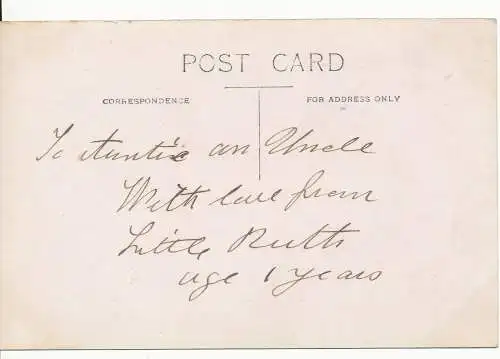 POST CARD
CORRESPONDENCE
FOR ADDRESS ONLY
To Auntie an Uncle
With love from
Little Ruth
age 1 years